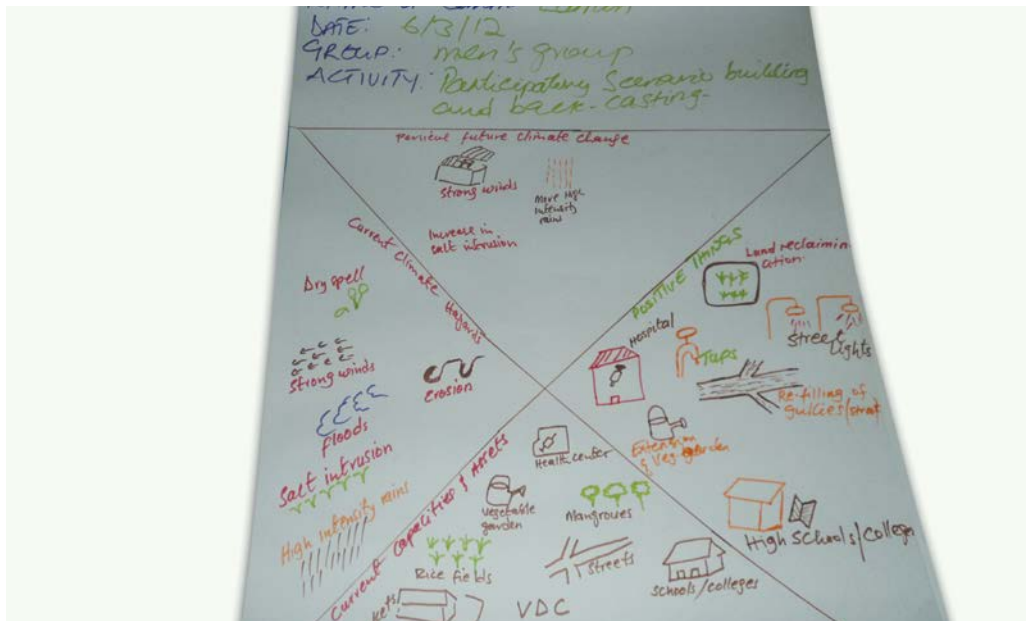 DATE: 6/3/12
GROUP: men's group
ACTIVITY: Participatory Scenario building
and back-casting-
future climate change
Strong winds
More High
intensity
rains
Increase in
salt intrusion
Current Climate Hazards
Dry spell
Strong winds
Erosion
floods
Salt intrusion
High intensity rains
POSITIVE THINGS
Land reclaimin
ation.
Street
lights
Hospital
Taps
Re-filling of
Extension
& veg. garden
High Schools/Colleges
Current Capacities & Assets
Health center
Vegetable
garden
Mangroves
Rice fields
Streets
Schools/colleges
VDC